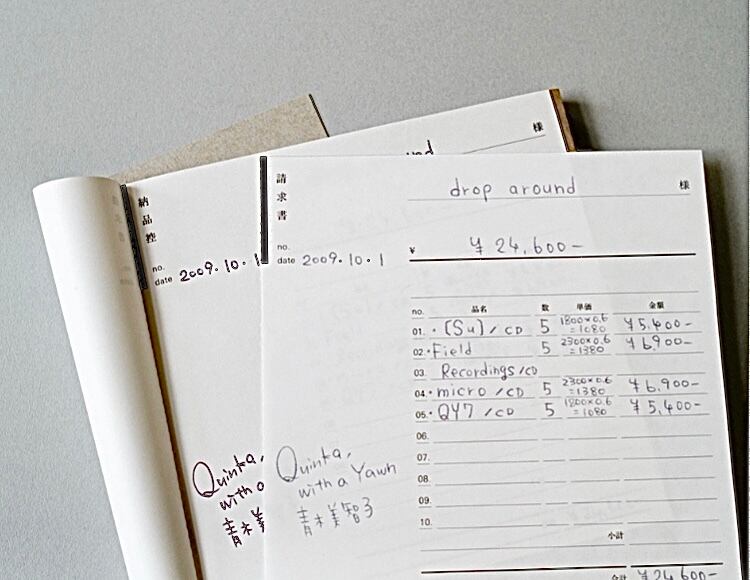 様
納品控
no.
date 2009.10.1
Quinka,
with a
青木美
請求書
drop around 様
no.
date 2009.10.1
¥ ¥24,600-
no. 品名 数 単価 金額
01. ・(Su)/CD 5 1800×0.6=1080 ¥5,400-
02. ・Field 5 2300×0.6=1380 ¥6,900-
03. Recordings/CD
04. ・micro/CD 5 2300×0.6=1380 ¥6,900-
05. ・QY7/CD 5 1800×0.6=1080 ¥5,400-
06.
07.
08.
09.
10.
小計
合計 ¥24,600-
Quinka,
with a Yawn
青木美智子